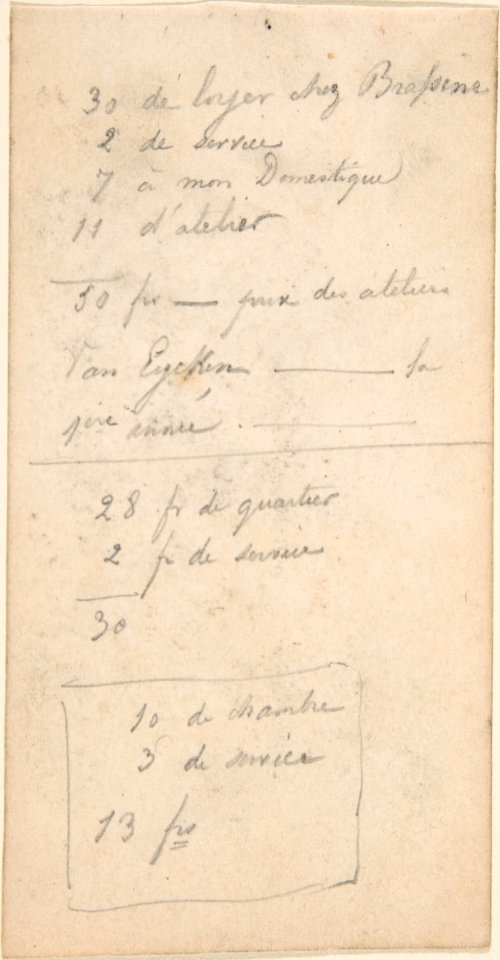 30 de loyer chez Brassine
2 de service
7 à mon Domestique
11 d'atelier
50 frs — prix des ateliers
Van Eycken ——— la
1ère année. ———
28 fr de quartier
2 fr de service
30
10 de chambre
3 de service
13 frs